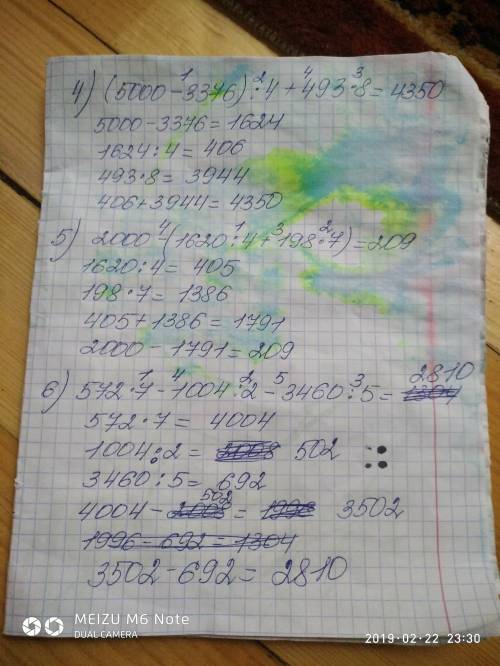 4) (5000 - 3376) : 4 + 493 · 8 = 4350
5000 - 3376 = 1624
1624 : 4 = 406
493 · 8 = 3944
406 + 3944 = 4350
5) 2000 - (1620 : 4 + 198 · 7) = 209
1620 : 4 = 405
198 · 7 = 1386
405 + 1386 = 1791
2000 - 1791 = 209
6) 572 · 7 - 1004 : 2 - 3460 : 5 = 2810
572 · 7 = 4004
1004 : 2 = 502
3460 : 5 = 692
4004 - 502 = 3502
1996 - 692 = 1304
3502 - 692 = 2810
MEIZU M6 Note
DUAL CAMERA
2019-02-22 23:30